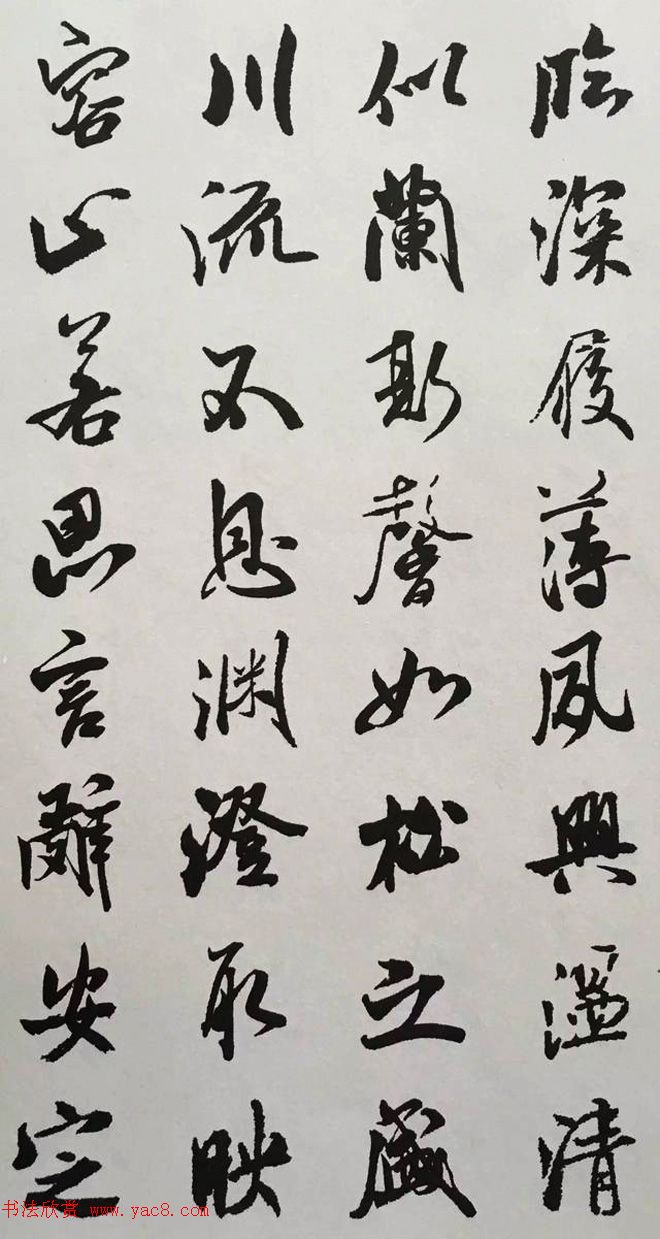 临深履薄夙興温清
似蘭斯馨如松之盛
川流不息渊澄取映
容止若思言辭安定
书法欣赏 www.yac8.com